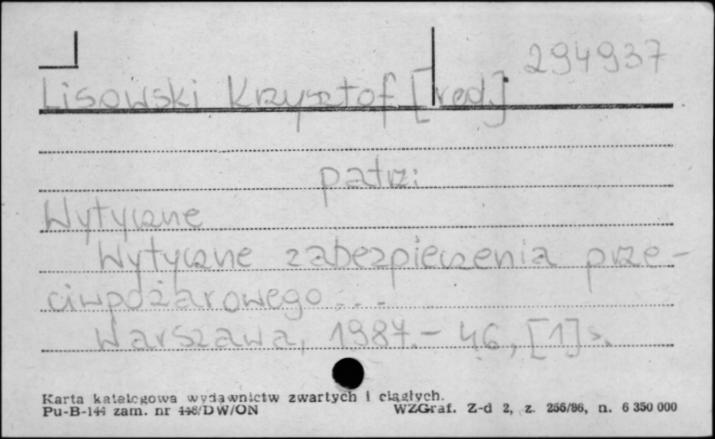 294937
Lisowski Krzysztof [red.]
patrz:
Wytyczne
Wytyczne zabezpieczenia prze-
ciwpożarowego...
Warszawa, 1987.- 46, [1] s.
Karta katalogowa wydawnictw zwartych i ciągłych.
Pu-B-144 zam. nr 448/DW/ON WZGraf. Z-d 2, z. 256/86, n. 6 350 000